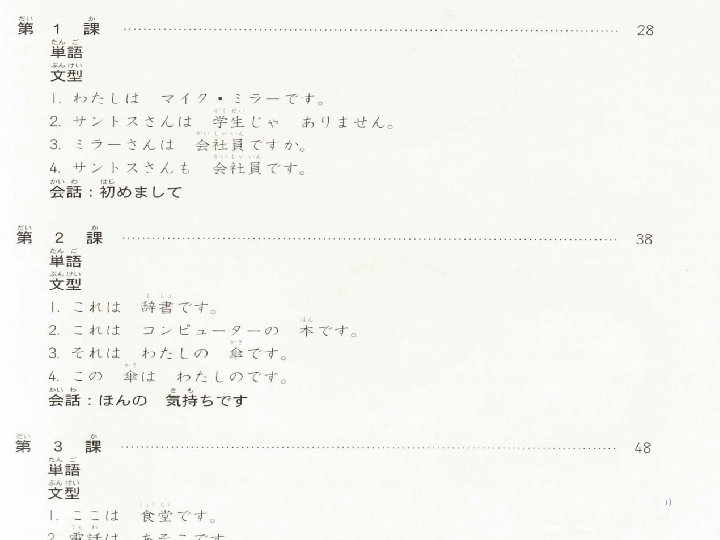 第 1 課 28
単語
文型
1. わたしは マイク・ミラーです。
2. サントスさんは 学生じゃ ありません。
3. ミラーさんは 会社員ですか。
4. サントスさんも 会社員です。
会話：初めまして
第 2 課 38
単語
文型
1. これは 辞書です。
2. これは コンピューターの 本です。
3. それは わたしの 傘です。
4. この 傘は わたしのです。
会話：ほんの 気持ちです
第 3 課 48
単語
文型
1. ここは 食堂です。
2. 電話は あそこです